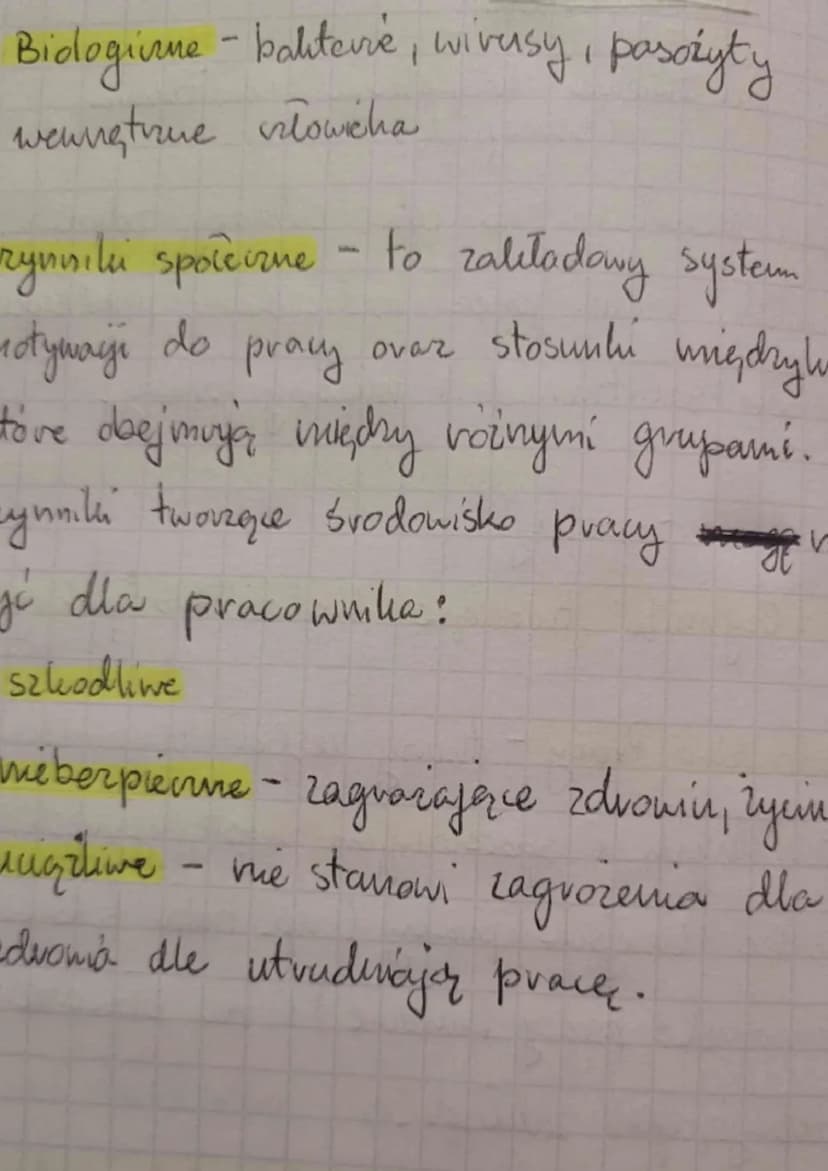 Biologiczne - bakterie, wirusy, pasożyty
wewnętrzne człowieka
zynniki społeczne - to zakładowy system
otywacji do pracy oraz stosunki międzylu
tóre obejmują między różnymi grupami.
zynniki tworzące środowisko pracy
yć dla pracownika:
szkodliwe
niebezpieczne - zagrażające zdrowiu, życiu
uciążliwe - nie stanowi zagrożenia dla
zdrowia ale utrudniają pracę.